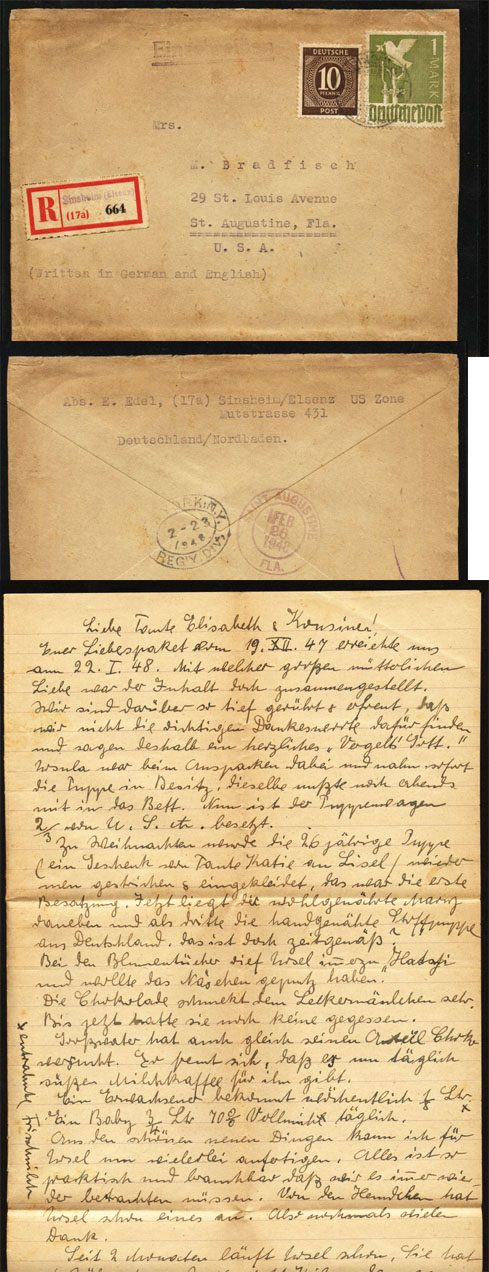 Einschreiben
DEUTSCHE
10
PFENNIG
POST
1 MARK
deutsche post
Mrs.
M. Bradfisch
29 St. Louis Avenue
St. Augustine, Fla.
U. S. A.
R
Sinsheim (Elsenz)
(17a) 664
(Written in German and English)
Abs. E. Edel, (17a) Sinsheim/Elsenz US Zone
Mutstrasse 431
Deutschland/Nordbaden.
N.Y.
2-23
1948
REG'Y. DIV.
SAINT AUGUSTINE
FEB
26
1948
FLA.
Liebe Tante Elisabeth & Kousinen!
Euer Liebespaket vom 19. XII. 47 erreichte uns
am 22. I. 48. Mit welcher großen mütterlichen
Liebe war der Inhalt doch zusammengestellt.
Wir sind darüber so tief gerührt & erfreut, daß
wir nicht die richtigen Dankesworte dafür finden
und sagen deshalb ein herzliches "Vogelts Gott."
Ursula war beim Auspacken dabei und nahm sofort
die Puppe in Besitz, dieselbe mußte noch abends
mit in das Bett. Nun ist der Puppenwagen
2/3 von U. S. A. besetzt.
Zu Weihnachten wurde die 26 jährige Puppe
(ein Geschenk von Tante Katie an Lisel) wieder
neu gestrichen & eingekleidet, das war die erste
Besatzung. Jetzt liegt die wohlgenährte Mary
daneben und als dritte die handgenähte Stoffpuppe
aus Deutschland, das ist doch zeitgemäß?
Bei den Blumentücher rief Ursel immerzu "Hatschi
und wollte das Näschen geputzt haben."
Die Chokolade schmekt dem Leckermäulchen sehr.
Bis jetzt hatte sie noch keine gegessen.
Großvater hat auch gleich seinen Anteil Choko
versucht. Er freut sich, daß es nun täglich
süßen Milchkaffee für ihn gibt.
Ein Erwachsener bekommt wöchentlich Ltr. x
Ein Baby 3/4 Ltr Vollmilch täglich.
x entrahmte Frischmilch
Aus den schönen neuen Dingen kann ich für
Ursel nun vielerlei anfertigen. Alles ist so
praktisch und brauchbar daß wir es immer wie-
der betrachten müssen. Von den Hemdchen hat
Ursel schon eines an. Also nochmals vielen
Dank.
Seit 2 Monaten läuft Ursel schon, Sie hat